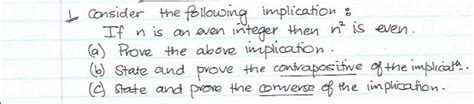 1. Consider the following implication :
If n is an even integer then n² is even.
(a) Prove the above implication.
(b) State and prove the contrapositive of the implicatⁿ.
(c) State and prove the converse of the implication.